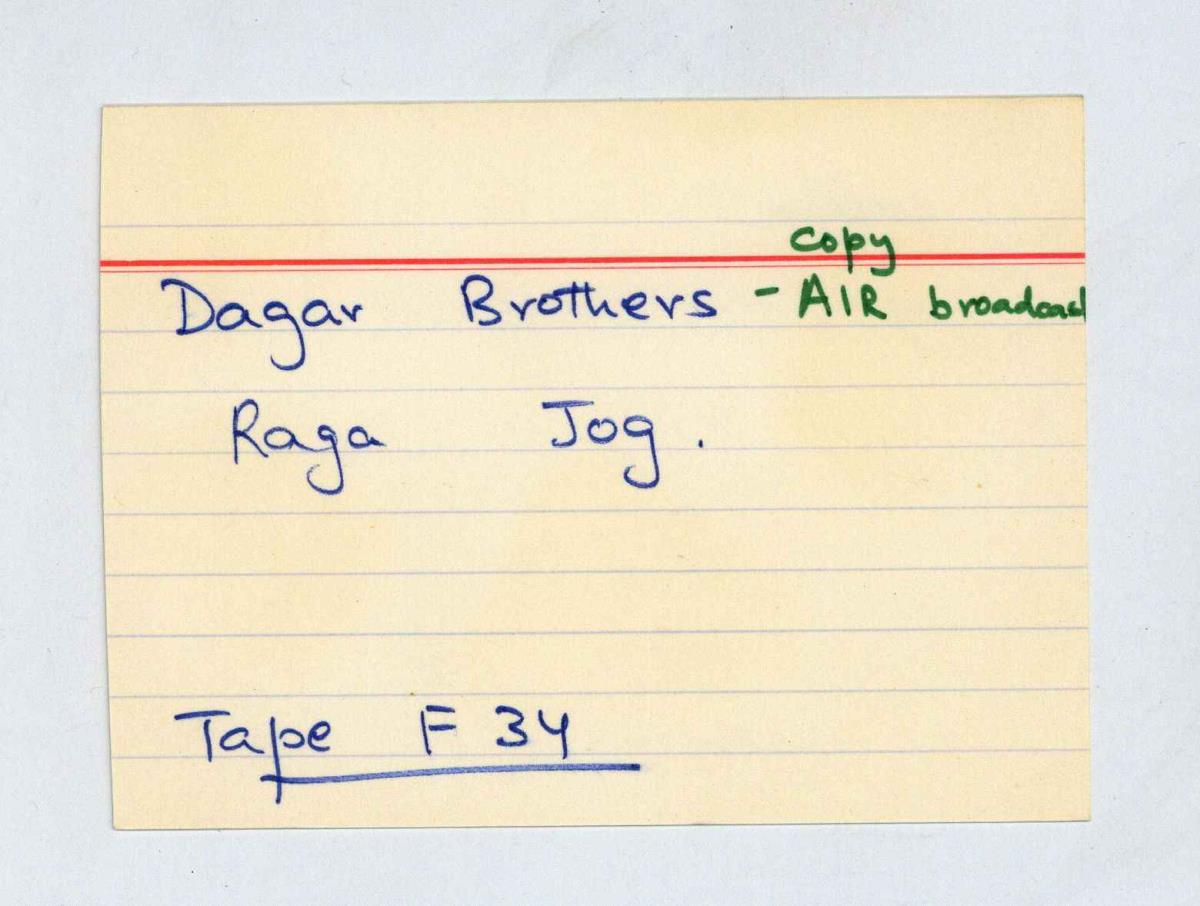 copy
Dagar Brothers - AIR broadcast
Raga Jog.
Tape F 34